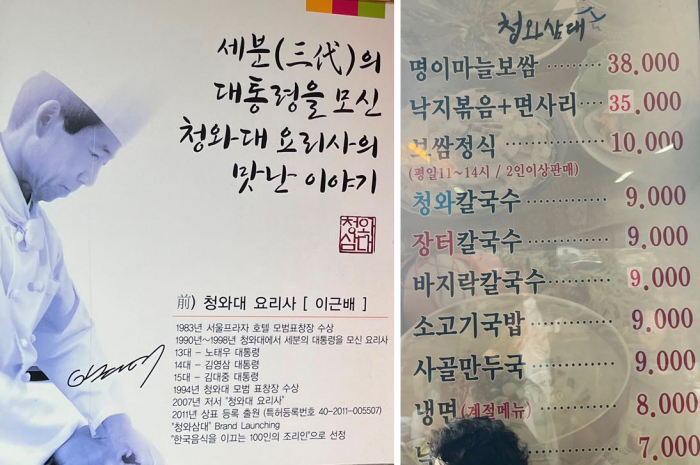 세분(三代)의
대통령을 모신
청와대 요리사의
맛난 이야기
청와
삼대
前) 청와대 요리사 [ 이근배 ]
1983년 서울프라자 호텔 모범표창장 수상
1990년~1998년 청와대에서 세분의 대통령을 모신 요리사
13대 - 노태우 대통령
14대 - 김영삼 대통령
15대 - 김대중 대통령
1994년 청와대 모범 표창장 수상
2007년 저서 "청와대 요리사"
2011년 상표 등록 출원 (특허등록번호 40-2011-005507)
"청와삼대" Brand Launching
"한국음식을 이끄는 100인의 조리인"으로 선정
청와삼대
명이마늘보쌈 38.000
낙지볶음+면사리 35.000
보쌈정식 10.000
(평일11~14시 / 2인이상판매)
청와칼국수 9.000
장터칼국수 9.000
바지락칼국수 9.000
소고기국밥 9.000
사골만두국 9.000
냉면(계절메뉴) 8.000
7.000